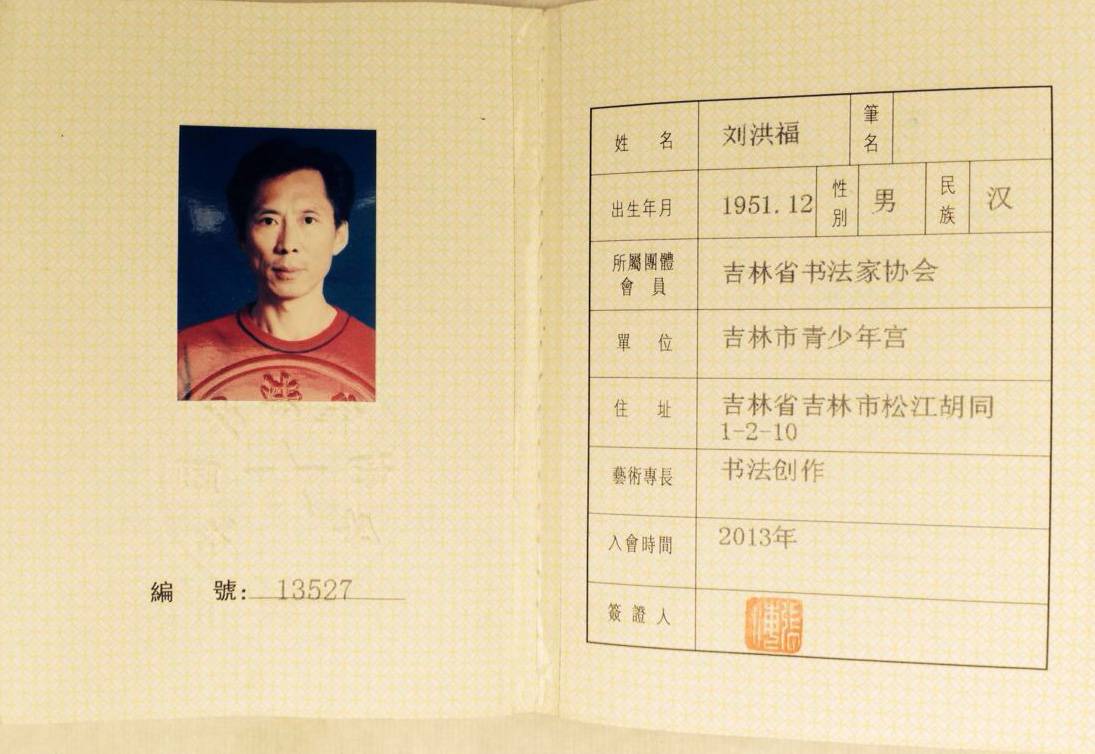 編 號: 13527
姓 名 刘洪福 筆名
出生年月 1951.12 性別 男 民族 汉
所屬團體會員 吉林省书法家协会
單 位 吉林市青少年宫
住 址 吉林省吉林市松江胡同
1-2-10
藝術專長 书法创作
入會時間 2013年
簽證人